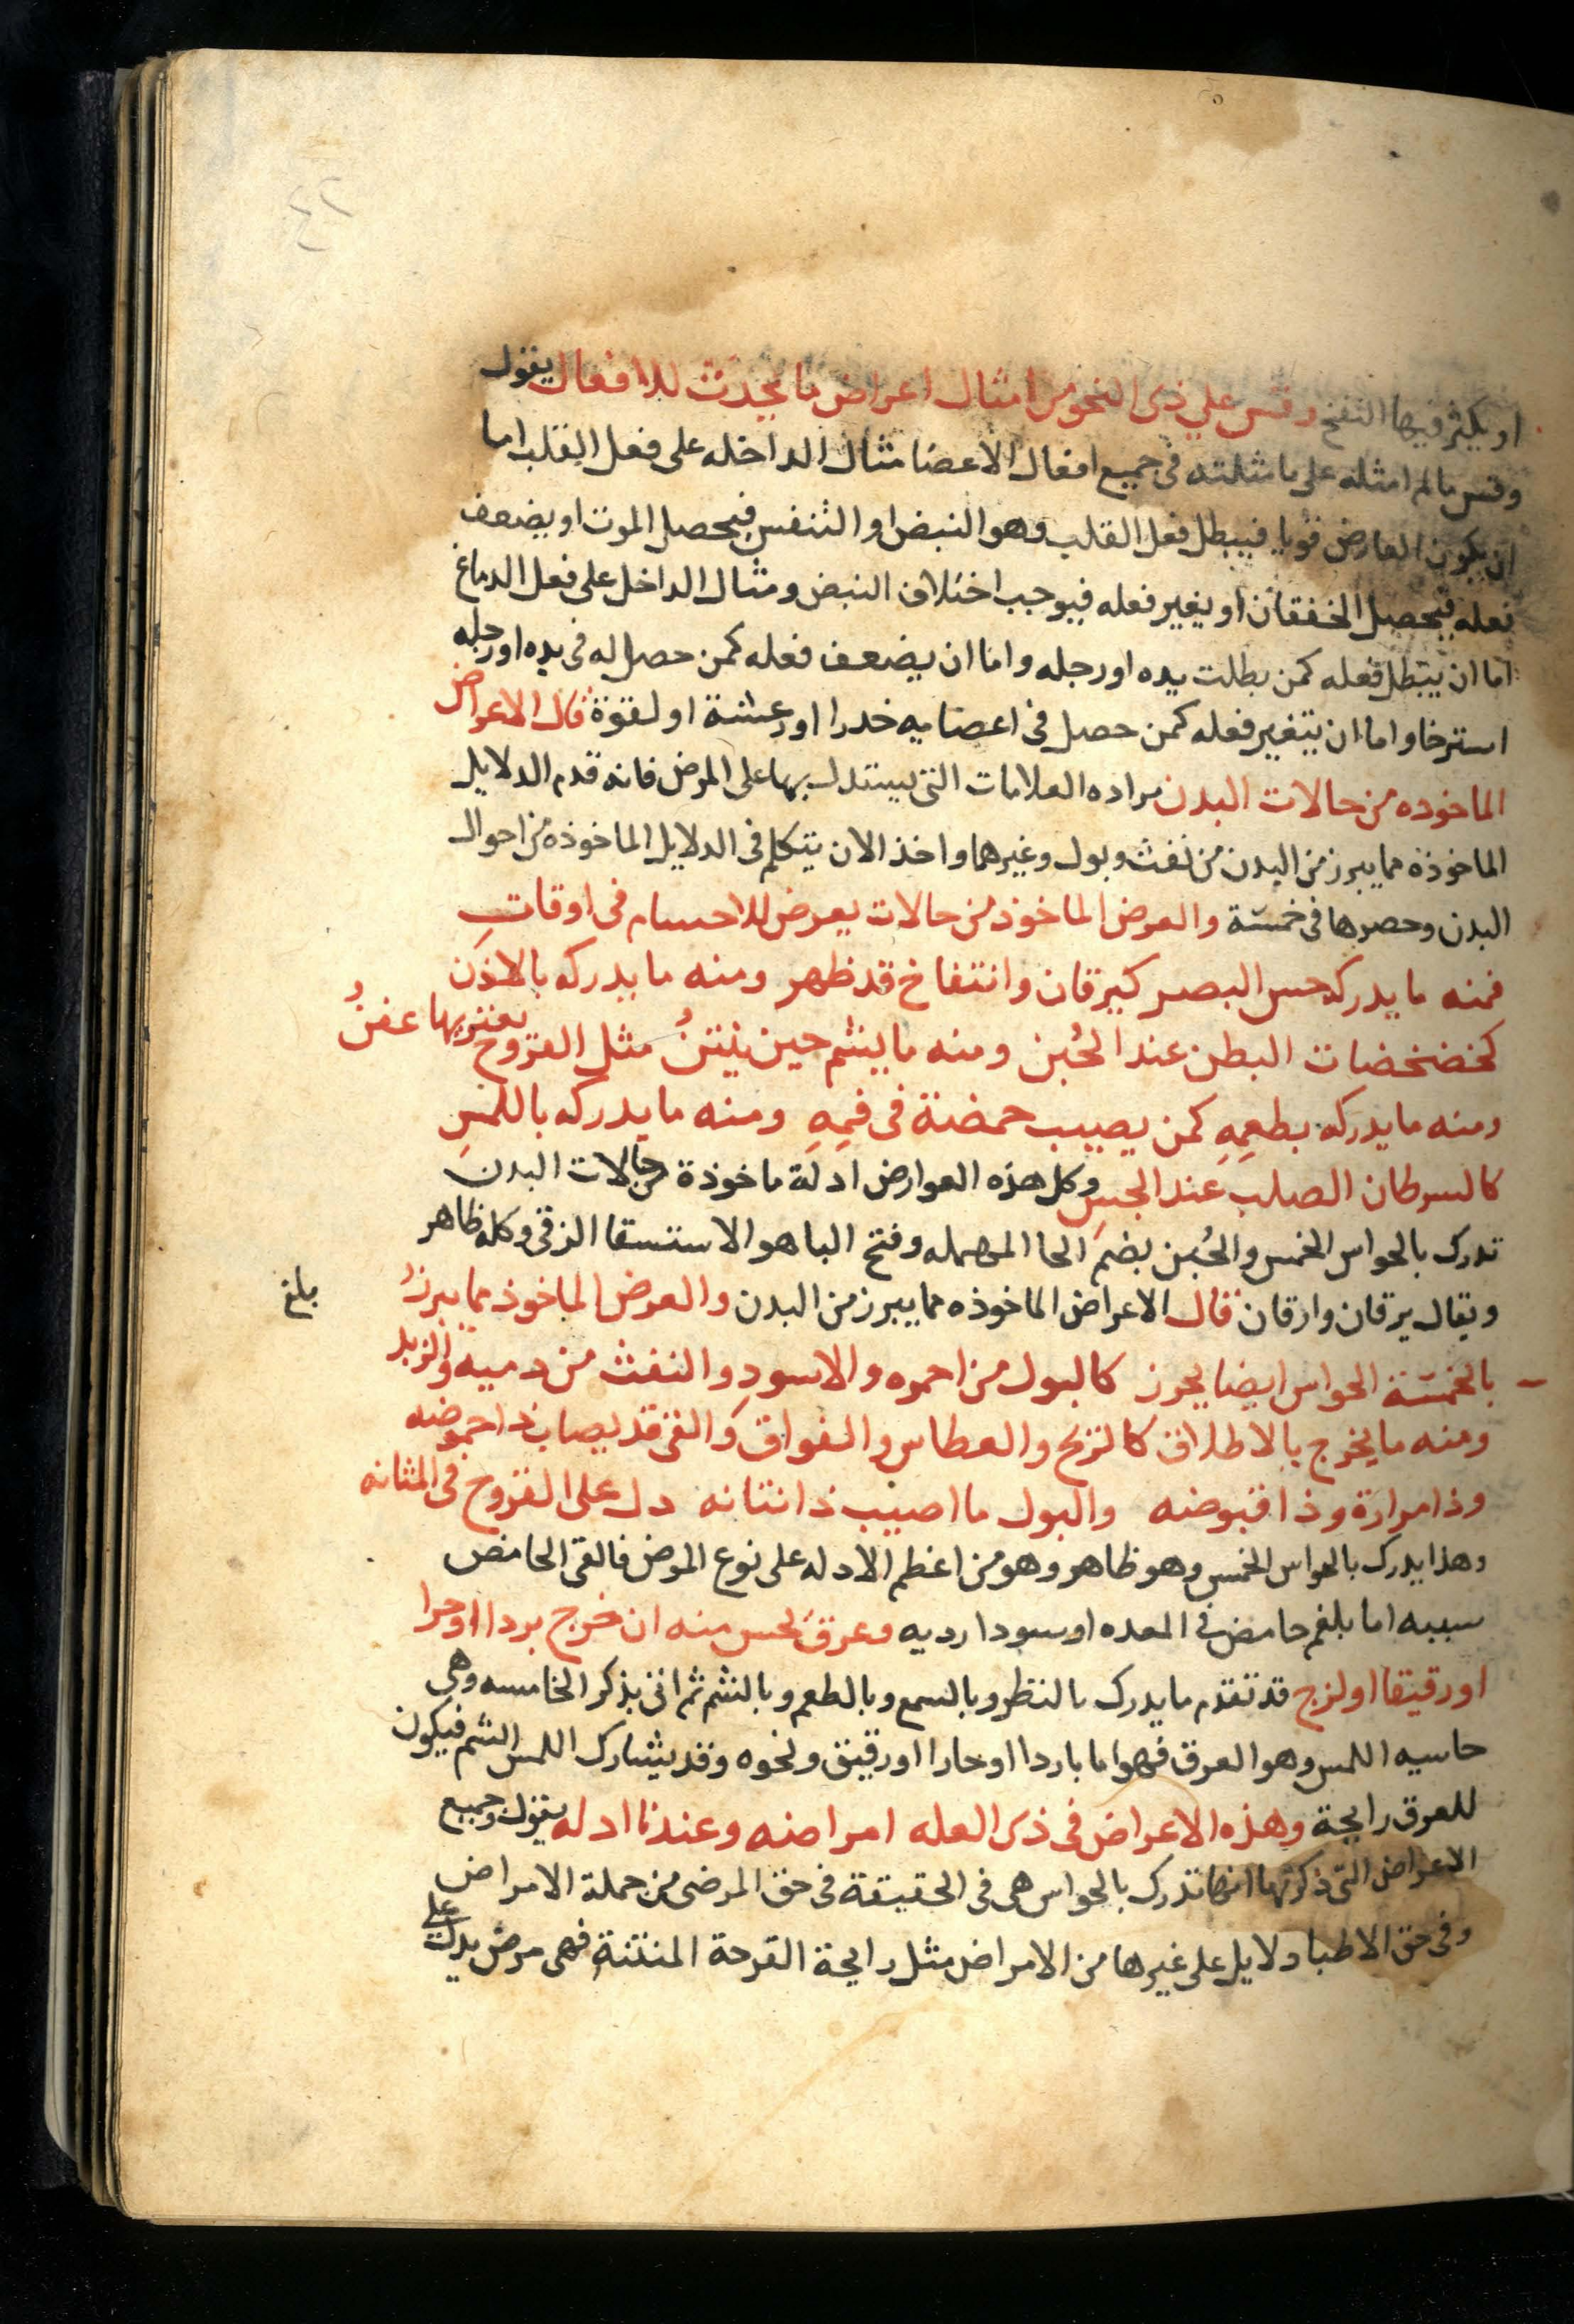 او يكثر فيها النفخ وقس على ذى النحو من امثال اعراض ما يحدث للافعال يقول
وقس ما لم امثله على ما مثلته فى جميع افعال الاعضا مثال الداخله على فعل القلب اما
ان يكون العارض قويا فيبطل فعل القلب وهو النبض او التنفس فيحصل الموت او يضعف
فعله فيحصل الخفقان او يغير فعله فيوجب اختلاف النبض ومثال الداخل على فعل الدماغ
اما ان يبطل فعله كمن بطلت يده او رجله واما ان يضعف فعله كمن حصل له فى يده او رجله
استرخا واما ان يتغير فعله كمن حصل فى اعضايه خدرا او رعشة او لقوة قال الاعراض
الماخوده من حالات البدن مراده العلامات التى يستدل بها على المرض فانه قدم الدلايل
الماخوذة مما يبرز من البدن من نفث وبول وغيرهما واخذ الان يتكلم فى الدلايل الماخوذه من احوال
البدن وحصرها فى خمسة والعرض الماخوذ من حالات يعرض للاحسام فى اوقات
فمنه ما يدركه حس البصر كيرقان وانتفاخ قد ظهر ومنه ما يدركه بالاذن
كخضخضات البطن عند الحُبن ومنه ما يشم حين ينتنُ مثل القروح يعتريها عفنُ
ومنه ما يدركه بطعمِهِ كمن يصيب حمضة فى فمِهِ ومنه ما يدركه باللمسِ
كالسرطان الصلب عند الجسِ وكل هذه العوارض ادلة ماخوذة من حالات البدن
تدرك بالحواس الخمس والحُبن بضم الحا المهمله وفتح البا هو الاستسقا الزقى وكله ظاهر
ويقال يرقان وارقان قال الاعراض الماخوذه مما يبرز من البدن والعرض الماخوذ مما يبرزُ
بلغ
بالخمسة الحواس ايضا يحرز كالبول من احمره والاسودِ والنفث من دميه والزبد
ومنه ما يخرج بالاطلاق كالريح والعطاس والفواق والقى قد يصاب ذا حموضه
وذا مرارة وذا قبوضه والبول ما اصيب ذا نتانه دل على القروح فى المثانه
وهذا يدرك بالحواس الخمس وهو ظاهر وهو من اعظم الادله على نوع المرض فالقى الحامض
سببه اما بلغم حامض فى المعده او سودا رديه وعرق يحس منه ان خرج بردا او حرا
او رقيقا او لزج قد تقدم ما يدرك بالنظر وبالسمع وبالطعم وبالشم ثم اتى بذكر الخامسه وهى
حاسيه اللمس وهو العرق فهو اما باردا او حارا او رقيق ونحوه وقد يشارك اللمس الشم فيكون
للعرق رايحة وهذه الاعراض فى ذى العله امراضه وعندنا ادله يقول وجميع
الاعراض التى ذكرتها انها تدرك بالحواس هى فى الحقيقة فى حق المرضى من جملة الامراض
وفى حق الاطبا دلايل على غيرها من الامراض مثل رايحة القرحة المنتنة فهى مرض يدل على